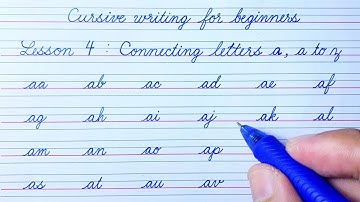 Cursive writing for beginners
Lesson 4 : Connecting letters a, a to z
aa ab ac ad ae af
ag ah ai aj ak al
am an ao ap
as at au av